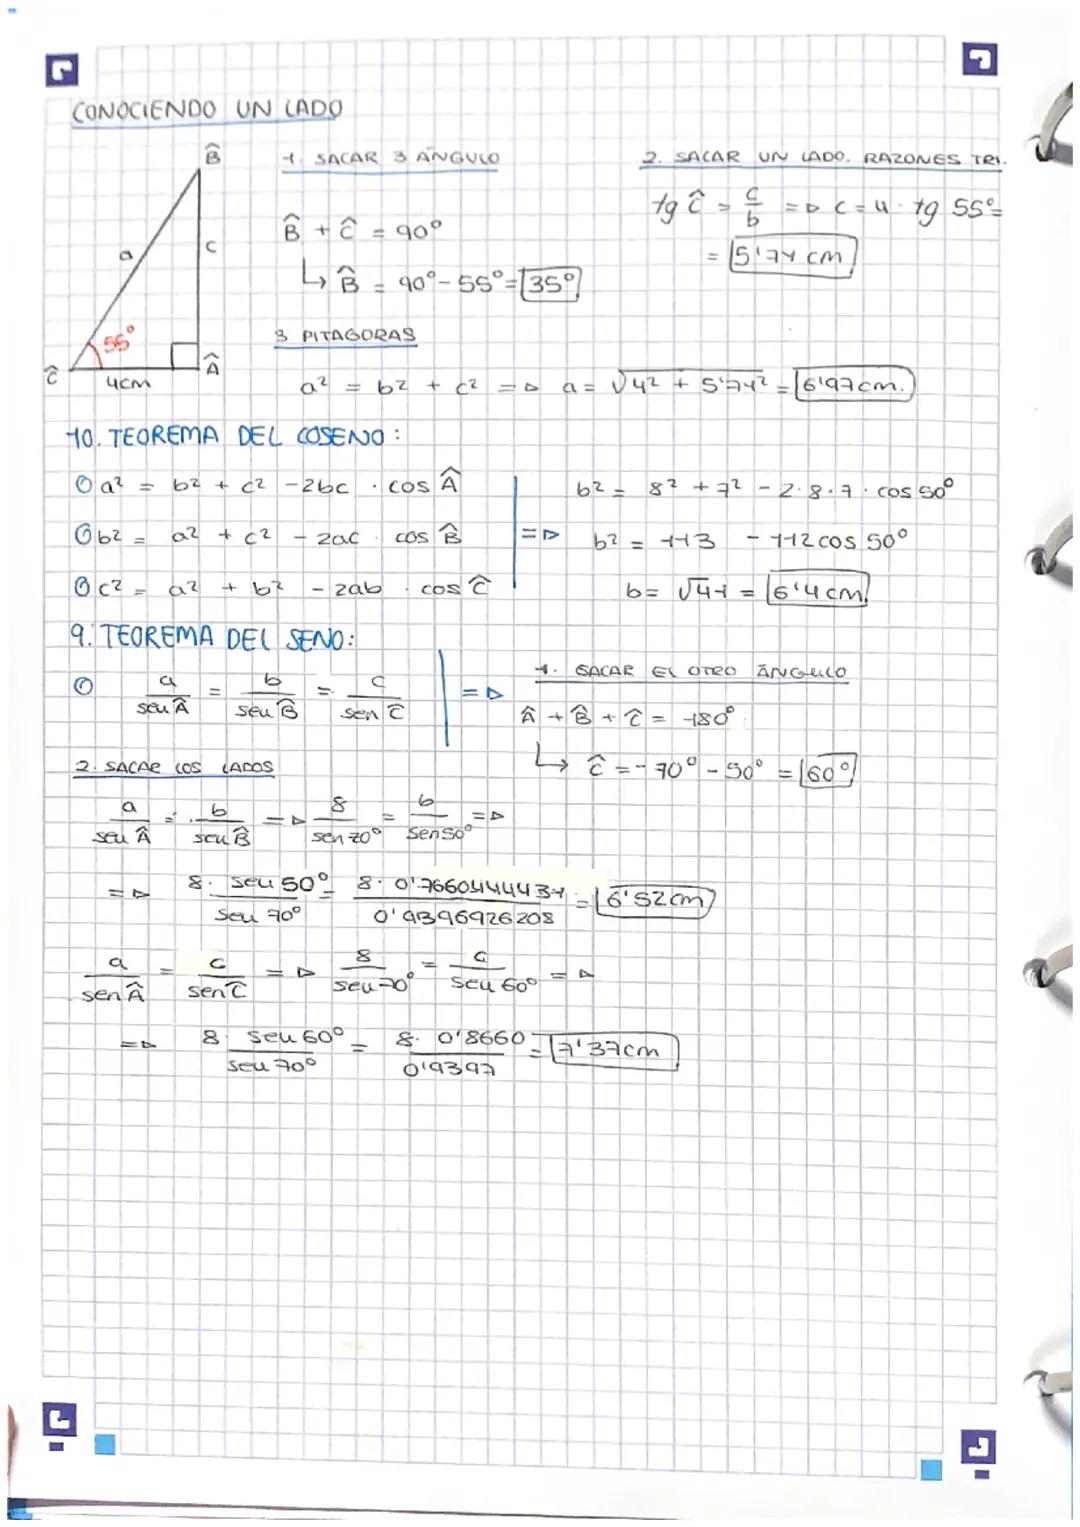 CONOCIENDO UN LADO
B̂
a
c
55°
Ĉ
4cm
Â
1. SACAR 3 ÁNGULO
B̂ + Ĉ = 90°
↳ B̂ = 90° - 55° = 35°
2. SACAR UN LADO. RAZONES TRI.
tg Ĉ = c/b => c = 4 · tg 55° =
= 5'74 cm
3 PITAGORAS
a² = b² + c² => a = √4² + 5'74² = 6'97cm.
10. TEOREMA DEL COSENO:
a² = b² + c² - 2bc · cos Â
b² = a² + c² - 2ac · cos B̂
c² = a² + b² - 2ab · cos Ĉ
=>
b² = 8² + 7² - 2·8·7· cos 50°
b² = 113 - 112 cos 50°
b = √41 = 6'4 cm
9. TEOREMA DEL SENO:
a/sen Â = b/sen B̂ = c/sen Ĉ =>
1. SACAR EL OTRO ÁNGULO
Â + B̂ + Ĉ = 180°
↳ Ĉ = - 70° - 50° = 60°
2. SACAR LOS LADOS
a/sen Â = b/sen B̂ => 8/sen 70° = b/sen 50° =>
=> 8 · sen 50°/sen 70° = 8 · 0'7660444431/0'9396926208 = 6'52cm
a/sen Â = c/sen Ĉ => 8/sen 70° = c/sen 60° =>
=> 8 · sen 60°/sen 70° = 8 · 0'8660/0'9397 = 7'37cm